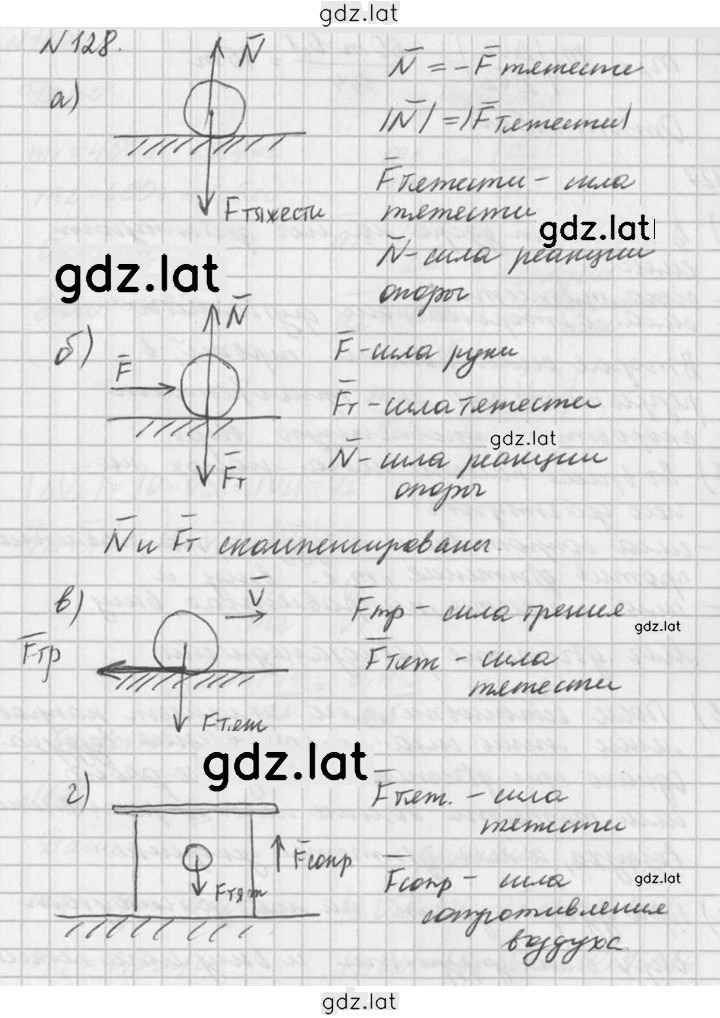 gdz.lat
N128.
а)
N̅
Fтяжести
N̅ = -F̅тяжести
|N̅| = |F̅тяжести|
F̅тяжести - сила
тяжести
gdz.lat
N̅ - сила реакции
опоры
gdz.lat
б)
N̅
F̅
F̅т
F̅ - сила руки
F̅т - сила тяжести
gdz.lat
N̅ - сила реакции
опоры
N̅ и F̅т скомпенсированы.
в)
V̅
F̅тр
Fтяж
F̅тр - сила трения
gdz.lat
F̅тяж - сила
тяжести
gdz.lat
г)
F̅сопр
Fтяж
F̅тяж. - сила
тяжести
F̅сопр - сила
gdz.lat
сопротивления
воздуха.
gdz.lat